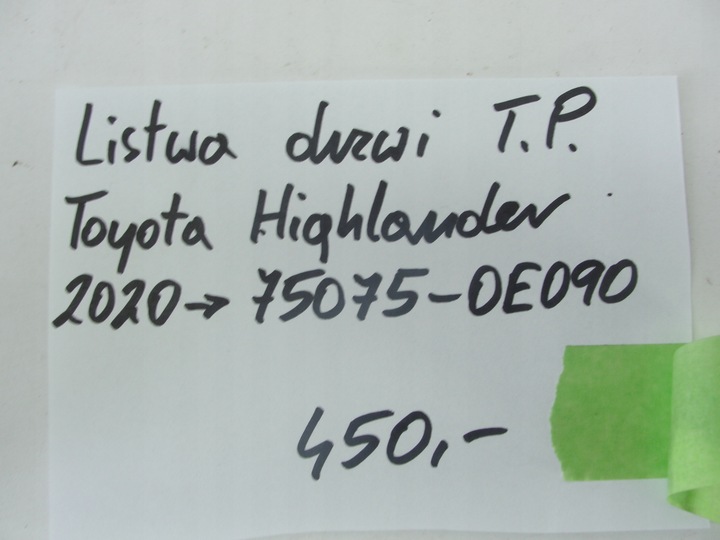 Listwa drzwi T.P.
Toyota Highlander
2020→ 75075-0E090
450,-